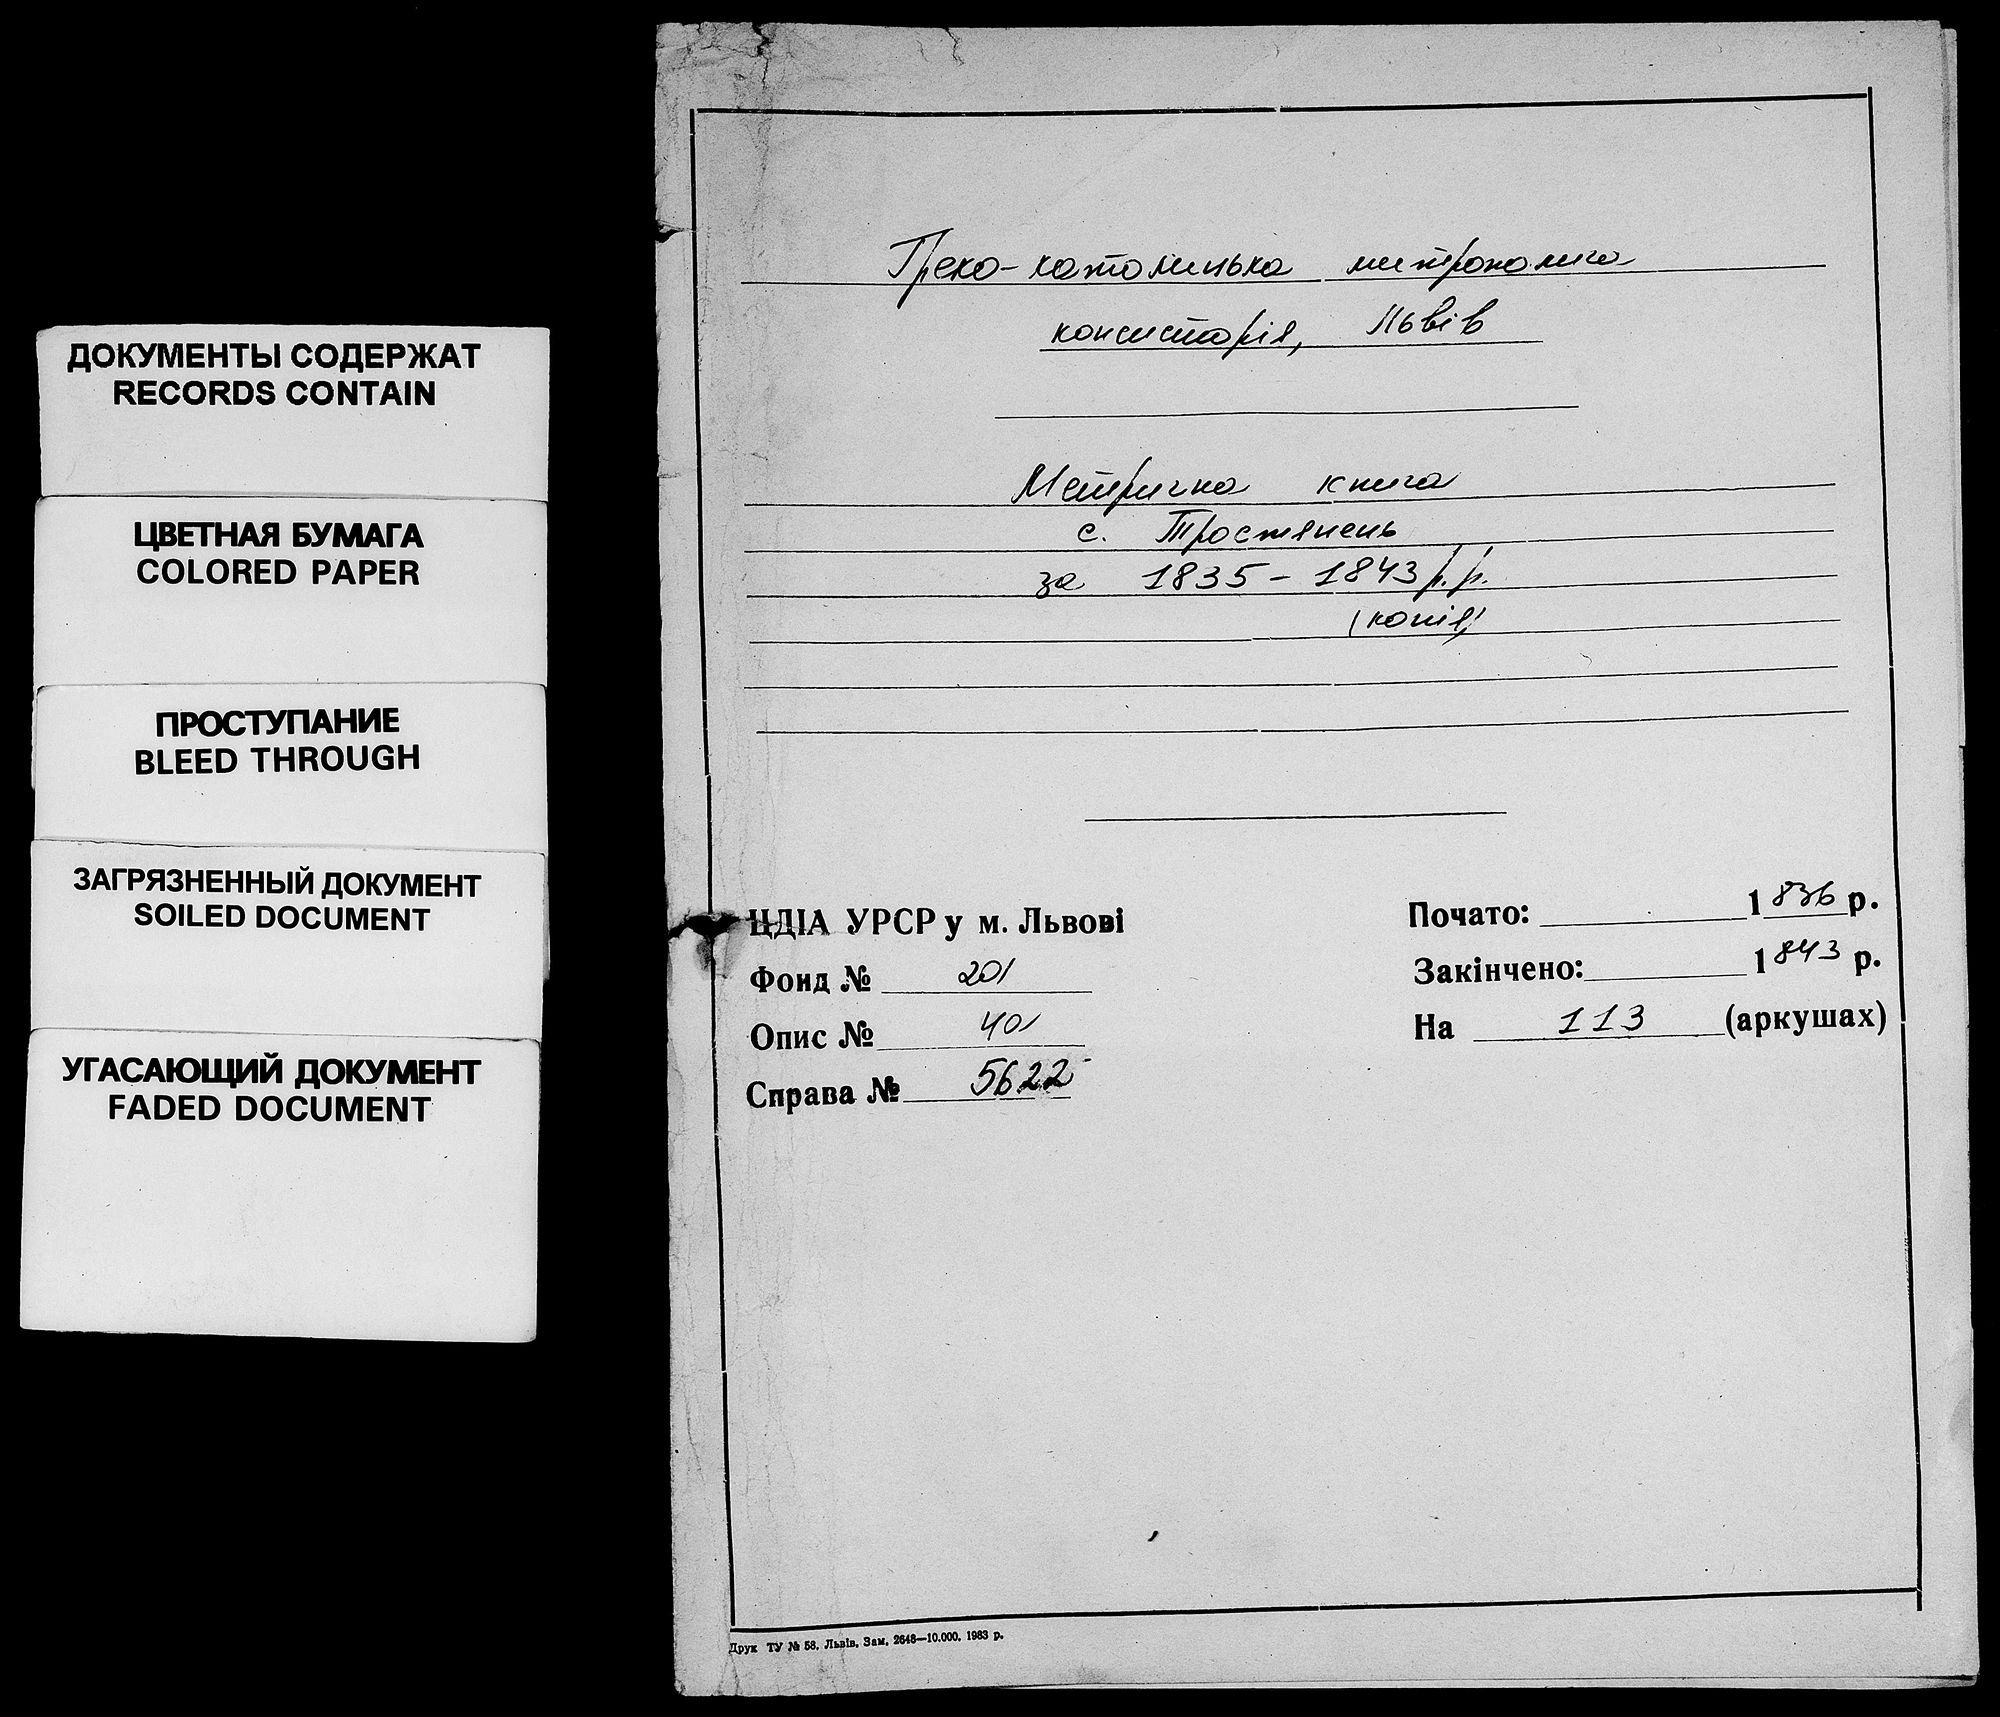 ДОКУМЕНТЫ СОДЕРЖАТ
RECORDS CONTAIN
ЦВЕТНАЯ БУМАГА
COLORED PAPER
ПРОСТУПАНИЕ
BLEED THROUGH
ЗАГРЯЗНЕННЫЙ ДОКУМЕНТ
SOILED DOCUMENT
УГАСАЮЩИЙ ДОКУМЕНТ
FADED DOCUMENT
Греко-католицька митрополича
консисторія, Львів
Метрична книга
с. Тростянець
за 1835-1843 р.р.
(копія)
ЦДІА УРСР у м. Львові
Фонд № 201
Опис № 401
Справа № 5622
Почато: 1836 р.
Закінчено: 1843 р.
На 113 (аркушах)
Друк ТУ № 58. Львів. Зам. 2648—10.000. 1983 р.